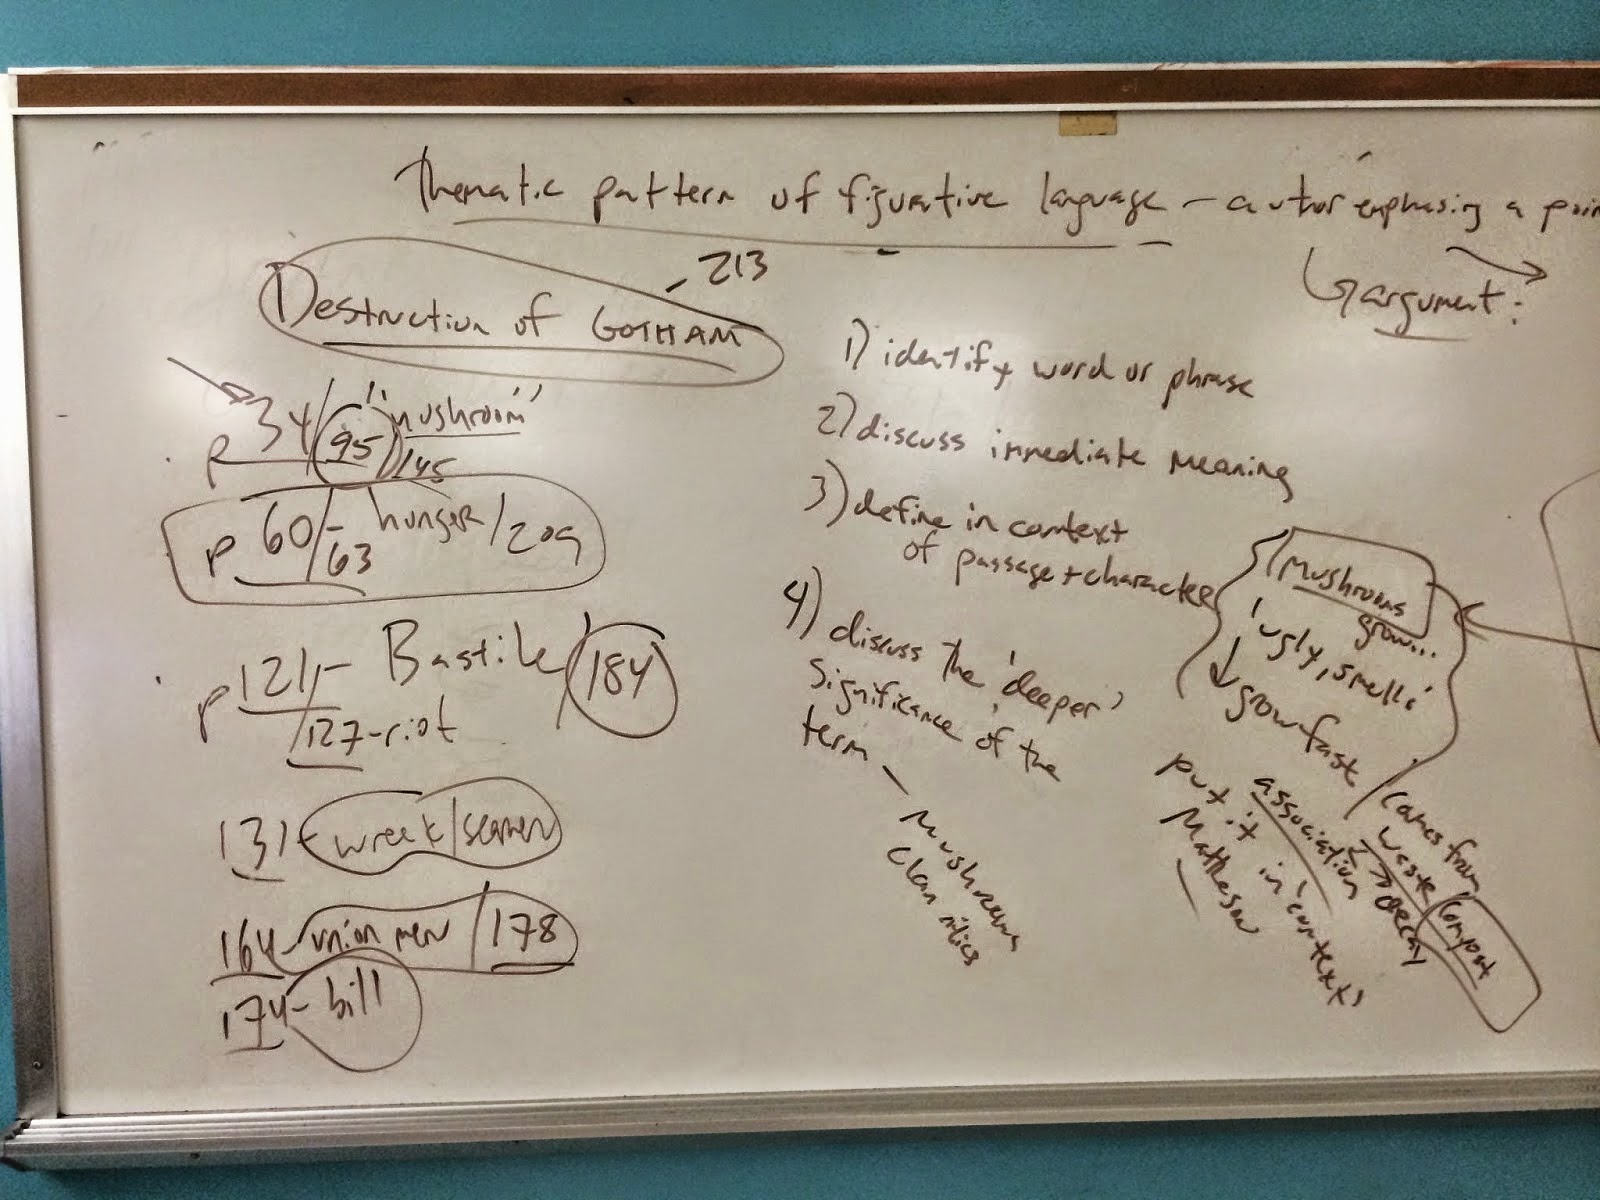 Thematic pattern of figurative language - author emphasing a poin
argument:
Destruction of GOTHAM - 213
p 34/95/145 "mushroom"
p 60/-63 hunger/209
p 121/- Bastile/184
/127-riot
131- wreck/seamen
164-union men/178
174-bill
1) identify word or phrase
2) discuss immediate meaning
3) define in context
of passage + character
4) discuss the 'deeper'
significance of the
term - mushrooms
mushrooms
grow...
'ugly, smells'
grow fast
comes from
waste compost
association
decay
put it in 'context'
Matheson